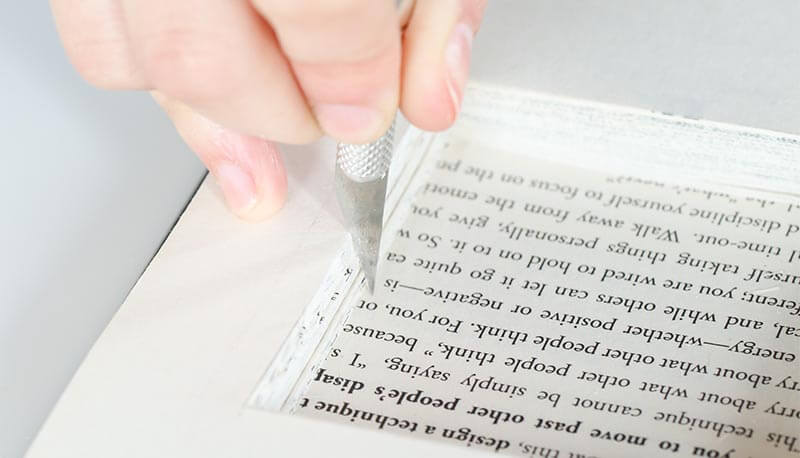 at this, design a technique t
you to move past other people's disap
This technique cannot be simply saying, "I s
orry about what other people think," because
ry about what other people think. For you, or
energy—whether positive or negative—is
cal, and while others can let it go it quite ca
ferent; you are wired to hold on to it. So w
urself taking things personally, give you
al time-out. Walk away from the emoti
d discipline yourself to focus on the pe
the "what's next?"